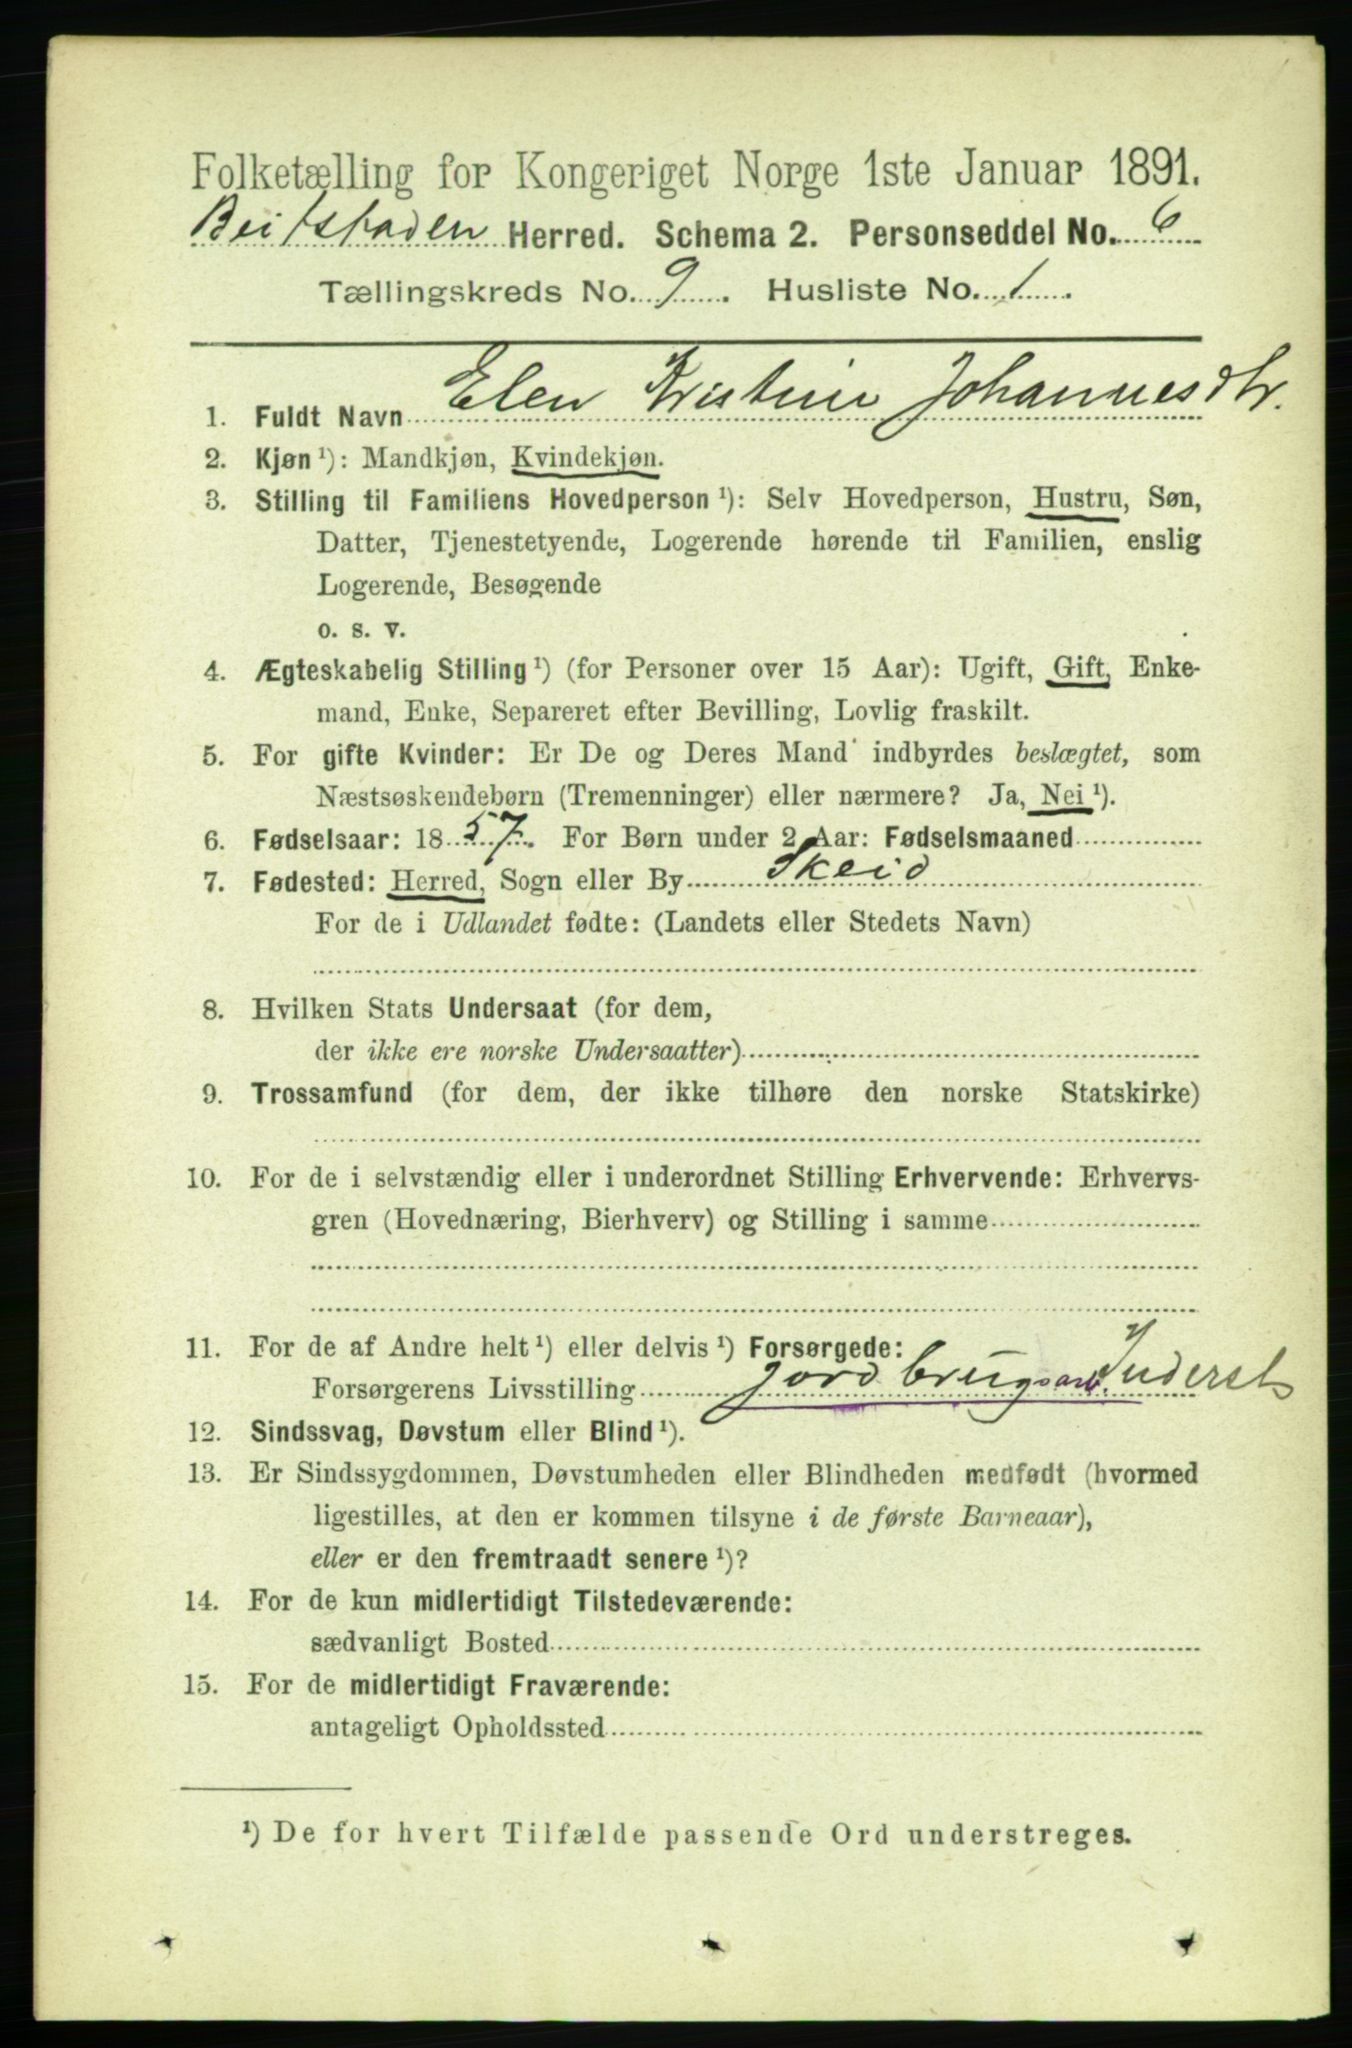 Folketælling for Kongeriget Norge 1ste Januar 1891.
Beitstaden Herred. Schema 2. Personseddel No. 6
Tællingskreds No. 9. Husliste No. 1.
1. Fuldt Navn Elen Kristine Johannesdtr.
2. Kjøn ¹): Mandkjøn, Kvindekjøn.
3. Stilling til Familiens Hovedperson ¹): Selv Hovedperson, Hustru, Søn,
Datter, Tjenestetyende, Logerende hørende til Familien, enslig
Logerende, Besøgende
o. s. v.
4. Ægteskabelig Stilling ¹) (for Personer over 15 Aar): Ugift, Gift, Enke-
mand, Enke, Separeret efter Bevilling, Lovlig fraskilt.
5. For gifte Kvinder: Er De og Deres Mand indbyrdes beslægtet, som
Næstsøskendebørn (Tremenninger) eller nærmere? Ja, Nei ¹).
6. Fødselsaar: 1857. For Børn under 2 Aar: Fødselsmaaned
7. Fødested: Herred, Sogn eller By Skeid
For de i Udlandet fødte: (Landets eller Stedets Navn)
8. Hvilken Stats Undersaat (for dem,
der ikke ere norske Undersaatter)
9. Trossamfund (for dem, der ikke tilhøre den norske Statskirke)
10. For de i selvstændig eller i underordnet Stilling Erhvervende: Erhvervs-
gren (Hovednæring, Bierhverv) og Stilling i samme
11. For de af Andre helt ¹) eller delvis ¹) Forsørgede:
Forsørgerens Livsstilling Jordbrugsarb. Inderst
12. Sindssvag, Døvstum eller Blind ¹).
13. Er Sindssygdommen, Døvstumheden eller Blindheden medfødt (hvormed
ligestilles, at den er kommen tilsyne i de første Barneaar),
eller er den fremtraadt senere ¹)?
14. For de kun midlertidigt Tilstedeværende:
sædvanligt Bosted
15. For de midlertidigt Fraværende:
antageligt Opholdssted
¹) De for hvert Tilfælde passende Ord understreges.